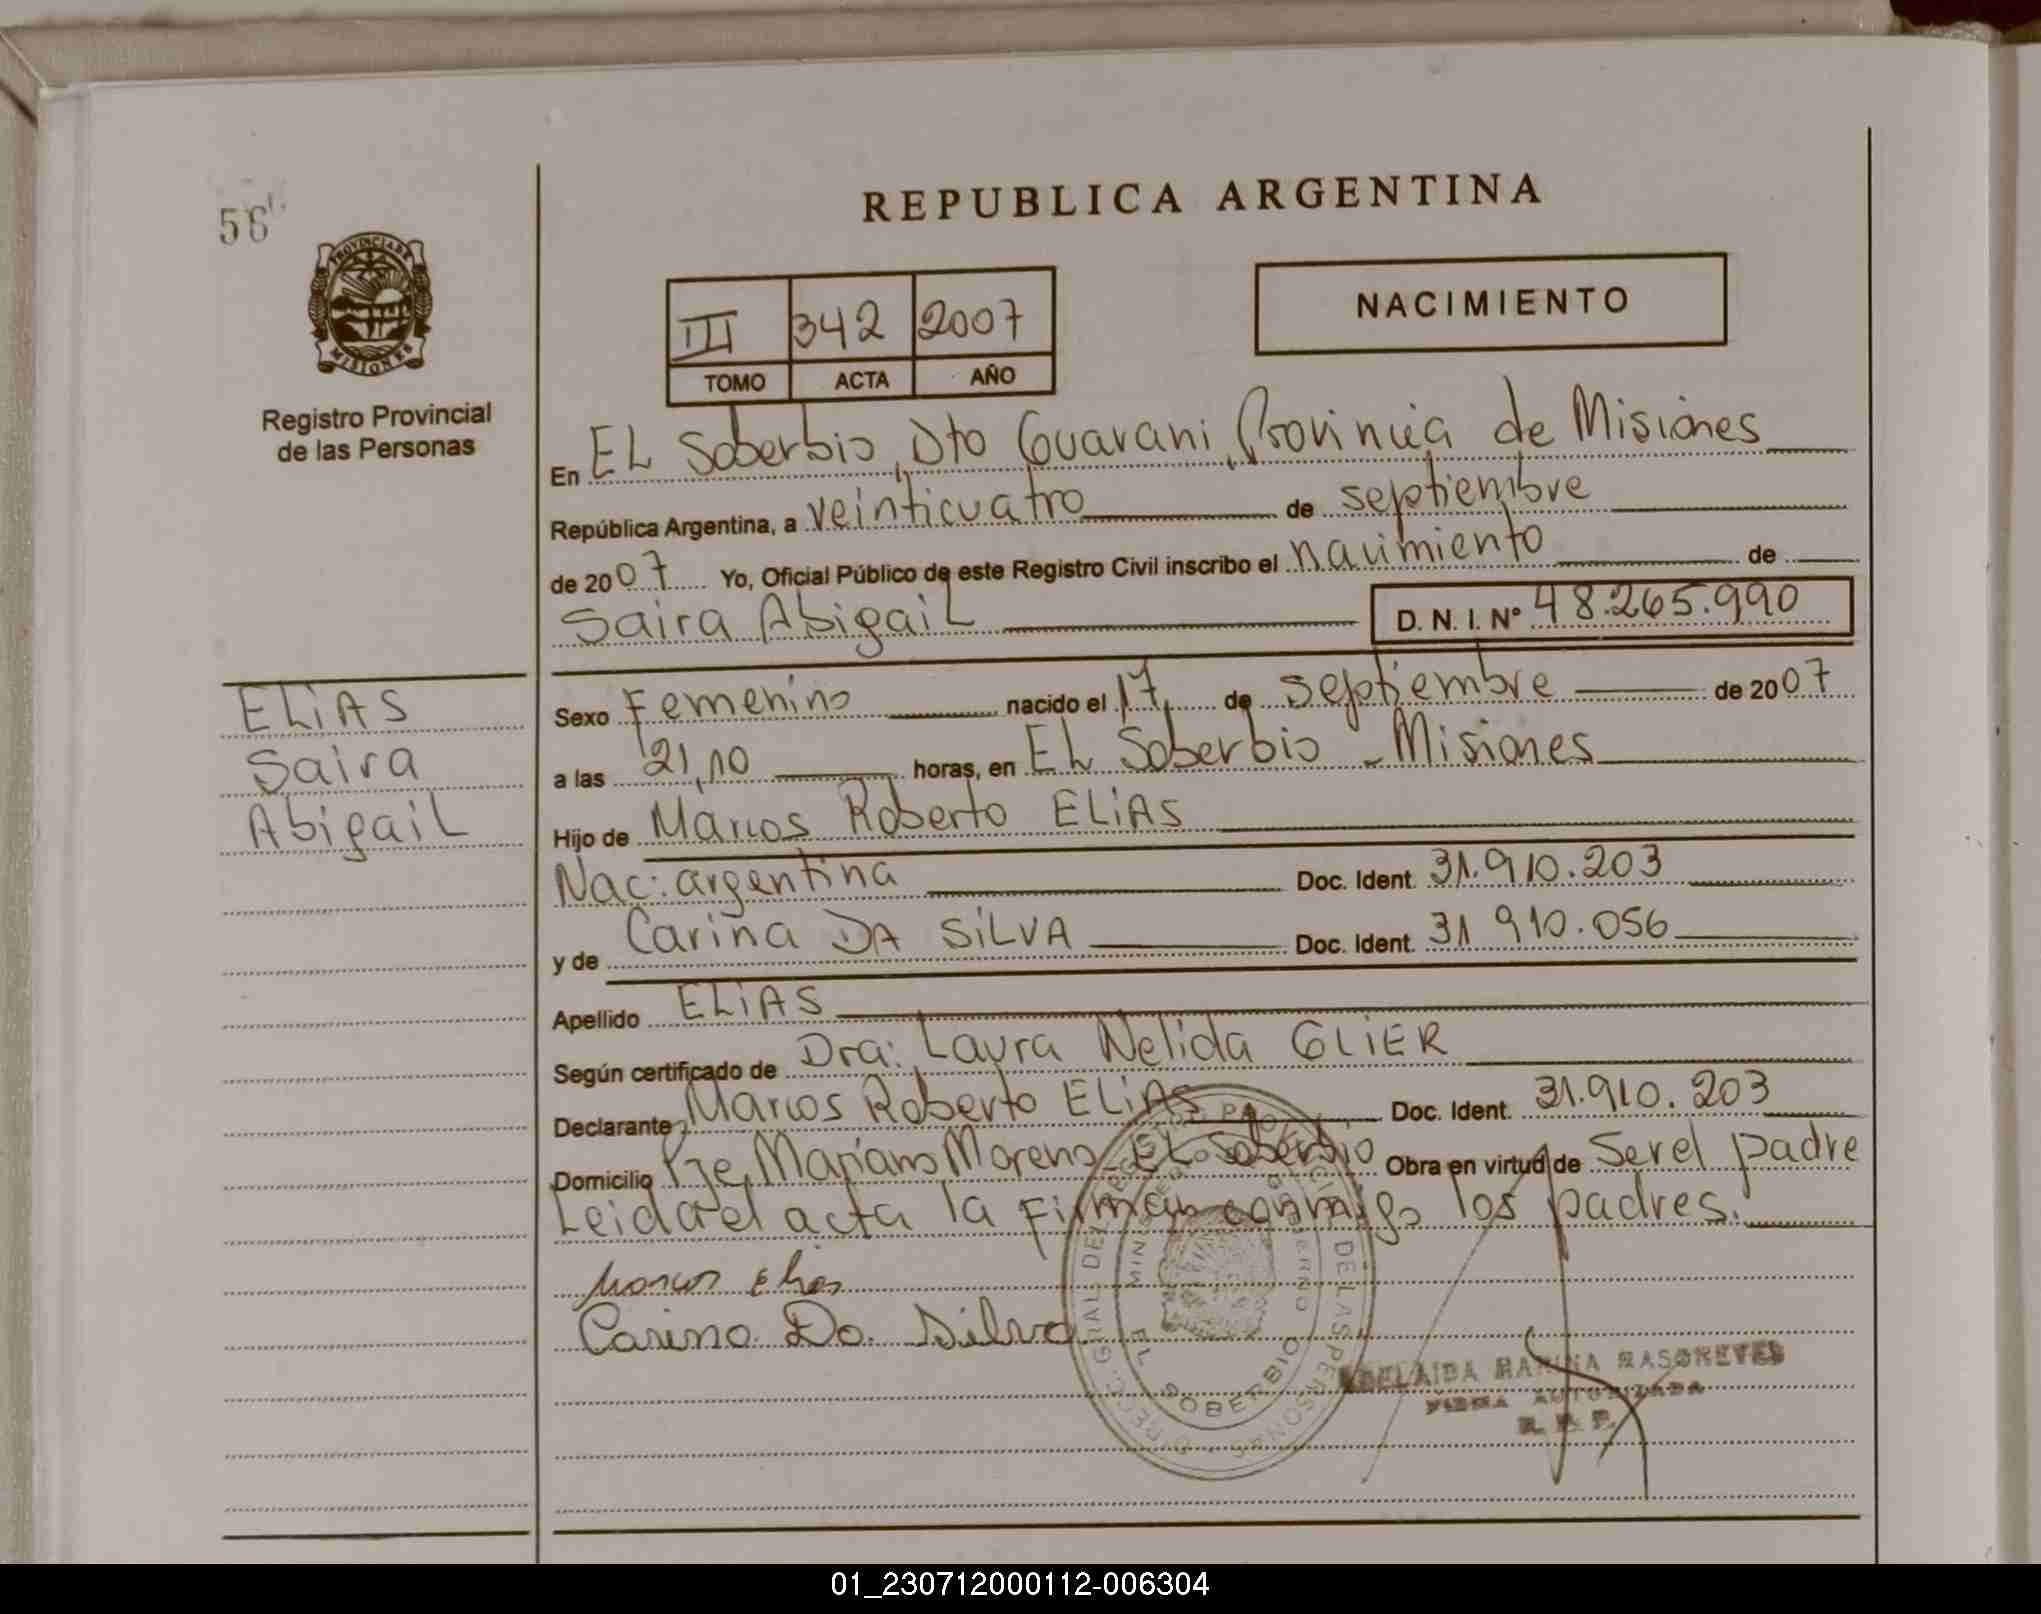 56
REPUBLICA ARGENTINA
PROVINCIA DE
MISIONES
Registro Provincial
de las Personas
III 342 2007
TOMO ACTA AÑO
NACIMIENTO
En EL Soberbio, Dto Guarani, Provincia de Misiones
República Argentina, a veinticuatro de septiembre
de 2007 Yo, Oficial Público de este Registro Civil inscribo el nacimiento de
Saira Abigail D. N. I. Nº 48.265.990
ELIAS
Saira
Abigail
Sexo Femenino nacido el 17 de septiembre de 2007
a las 21,10 horas, en EL Soberbio - Misiones
Hijo de Marcos Roberto ELIAS
Nac: argentina Doc. Ident. 31.910.203
y de Carina DA SILVA Doc. Ident. 31 910.056
Apellido ELIAS
Según certificado de Dra: Laura Nelida GLIER
Declarante Marcos Roberto ELIAS Doc. Ident. 31.910.203
Domicilio Pje Mariano Moreno EL Soberbio Obra en virtud de Ser el padre
Leida el acta la firman conmigo los padres.
Marcos Elias
Carina Da Silva
EL SOBERBIO
ADELAIDA MARINA
FIRMA AUTORIZADA
R. P. P.
01_230712000112-006304